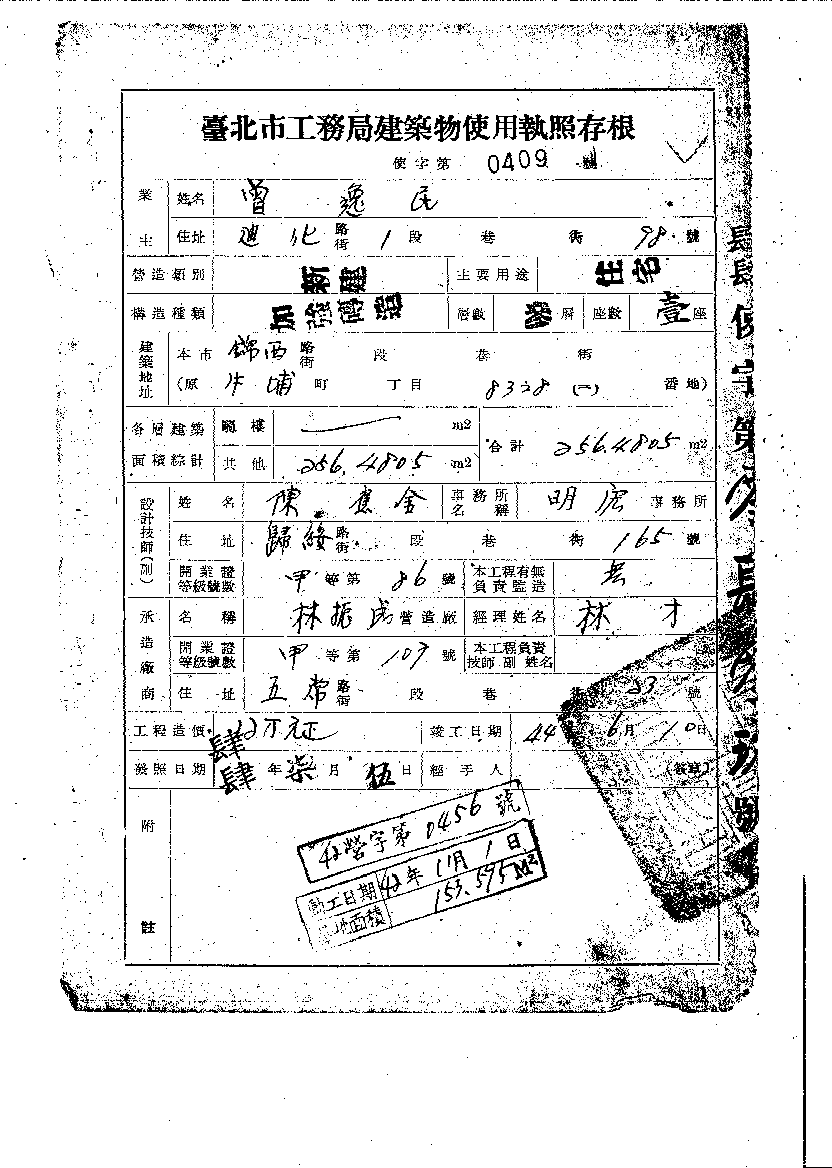 臺北市工務局建築物使用執照存根
使字第 0409 號
業主 姓名 曾逸民
住址 迪化路街 1 段 巷 街 98 號
營造類別 新建 主要用途 住宅
構造種類 加強磚造 層數 層 座數 壹 座
建築地址 本市 錦西 路街 段 巷 街
(原 町 丁目 8328 (一) 番地)
各層建築面積綜計 騎樓 m2 合計 256.4805 m2
其他 256.4805 m2
設計技師(副) 姓名 陳 金 事務所名稱 明 事務所
住址 歸綏 路街 段 巷 街 165 號
開業證等級號數 甲 等第 86 號 本工程有無負責監造
承造廠商 名稱 林振 營造廠 經理姓名 林才
開業證等級號數 甲 等第 107 號 本工程負責技師副姓名
住址 五常 路街 段 巷 街 23 號
工程造價 萬元正 竣工日期 44 年 6 月 10 日
發照日期 肆肆 年 柒 月 伍 日 經手人 (簽章)
附註
42營字第0456號
動工日期 42年11月1日
面積 153.595 M2
肆肆使字第 號